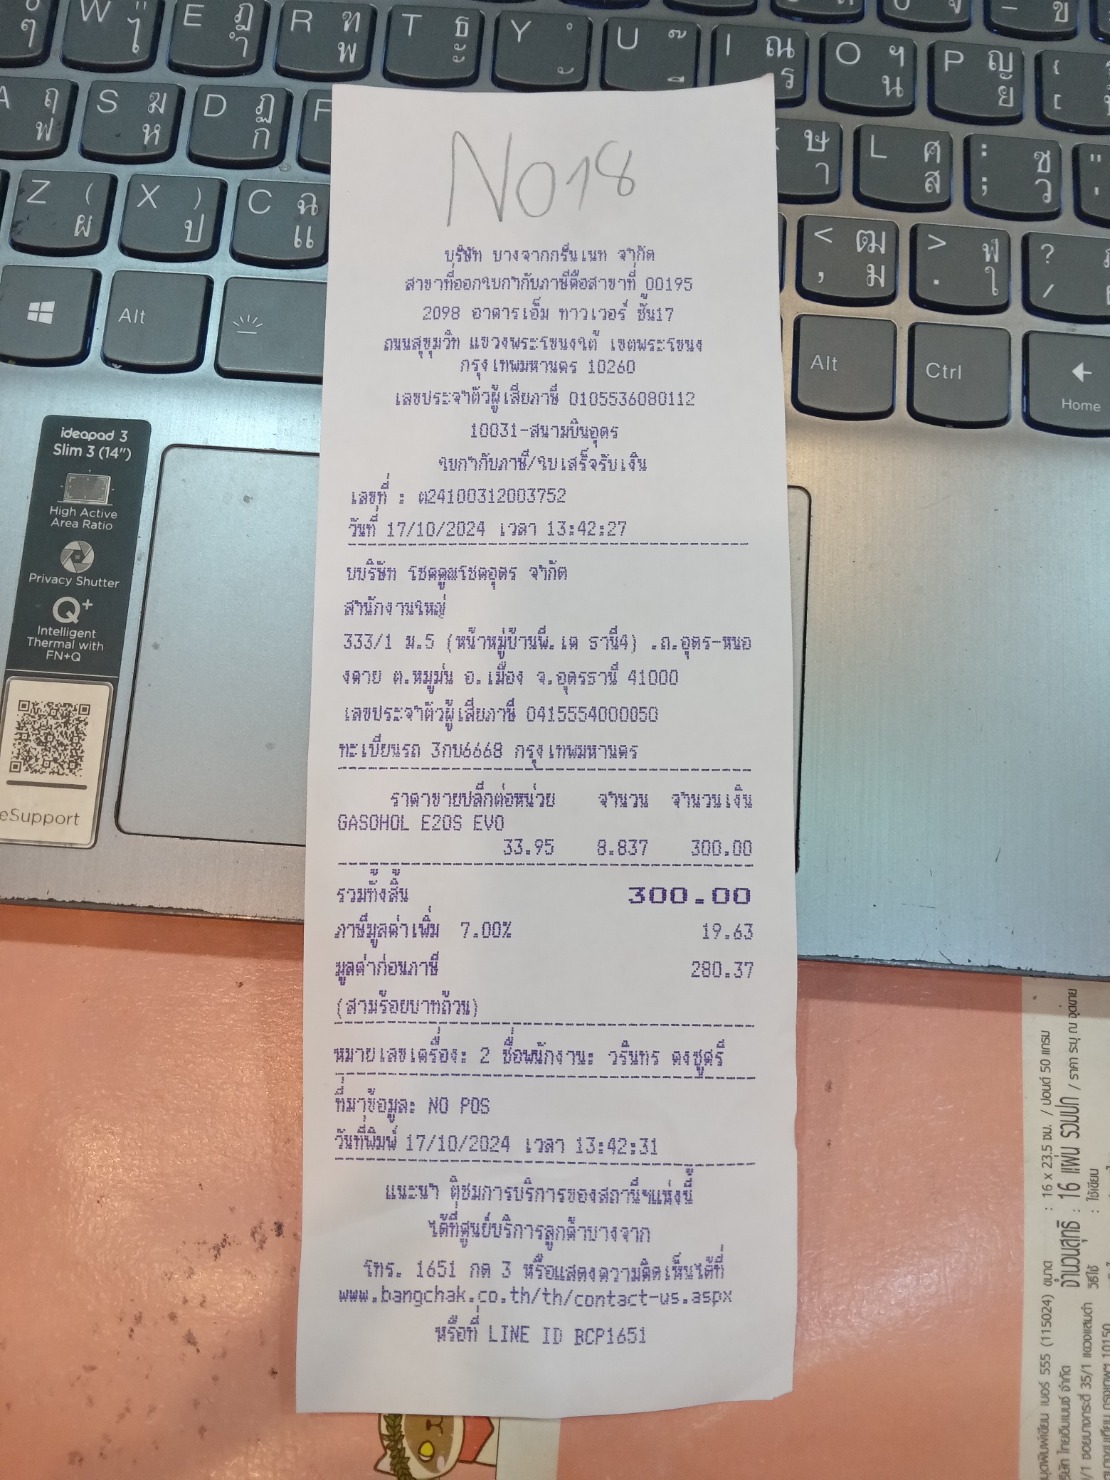 No18
บริษัท บางจากกรีนเนท จำกัด
สาขาที่ออกใบกำกับภาษีคือสาขาที่ 00195
2098 อาคารเอ็ม ทาวเวอร์ ชั้น17
ถนนสุขุมวิท แขวงพระโขนงใต้ เขตพระโขนง
กรุงเทพมหานคร 10260
เลขประจำตัวผู้เสียภาษี 0105536080112
10031-สนามบินอุดร
ใบกำกับภาษี/ใบเสร็จรับเงิน
เลขที่ : ต24100312003752
วันที่ 17/10/2024 เวลา 13:42:27
บบริษัท โชคคูณโชคอุดร จำกัด
สำนักงานใหญ่
333/1 ม.5 (หน้าหมู่บ้านพี.เค ธานี4) .ถ.อุดร-หนอ
งคาย ต.หมูม่น อ.เมือง จ.อุดรธานี 41000
เลขประจำตัวผู้เสียภาษี 0415554000050
ทะเบียนรถ 3กบ6668 กรุงเทพมหานคร
ราคาขายปลีกต่อหน่วย จำนวน จำนวนเงิน
GASOHOL E20S EVO
33.95 8.837 300.00
รวมทั้งสิ้น 300.00
ภาษีมูลค่าเพิ่ม 7.00% 19.63
มูลค่าก่อนภาษี 280.37
(สามร้อยบาทถ้วน)
หมายเลขเครื่อง: 2 ชื่อพนักงาน: วรินทร คงชูศรี
ที่มาข้อมูล: NO POS
วันที่พิมพ์ 17/10/2024 เวลา 13:42:31
แนะนำ ติชมการบริการของสถานีฯแห่งนี้
ได้ที่ศูนย์บริการลูกค้าบางจาก
โทร. 1651 กด 3 หรือแสดงความคิดเห็นได้ที่
www.bangchak.co.th/th/contact-us.aspx
หรือที่ LINE ID BCP1651
ideapad 3
Slim 3 (14")
High Active
Area Ratio
Privacy Shutter
Q+
Intelligent
Thermal with
FN+Q
eSupport
W
E
R
T
Y
U
I
O
P
A
S
D
F
L
Z
X
C
Alt
Alt
Ctrl
Home
ขนาด : 16 x 23.5 ซม. / ปอนด์ 50 แกรม
จำนวนสุทธิ : 16 แผ่น รวมปก / ราคา ระบุ ณ จุดขาย
วิธีใช้ : ใช้เขียน